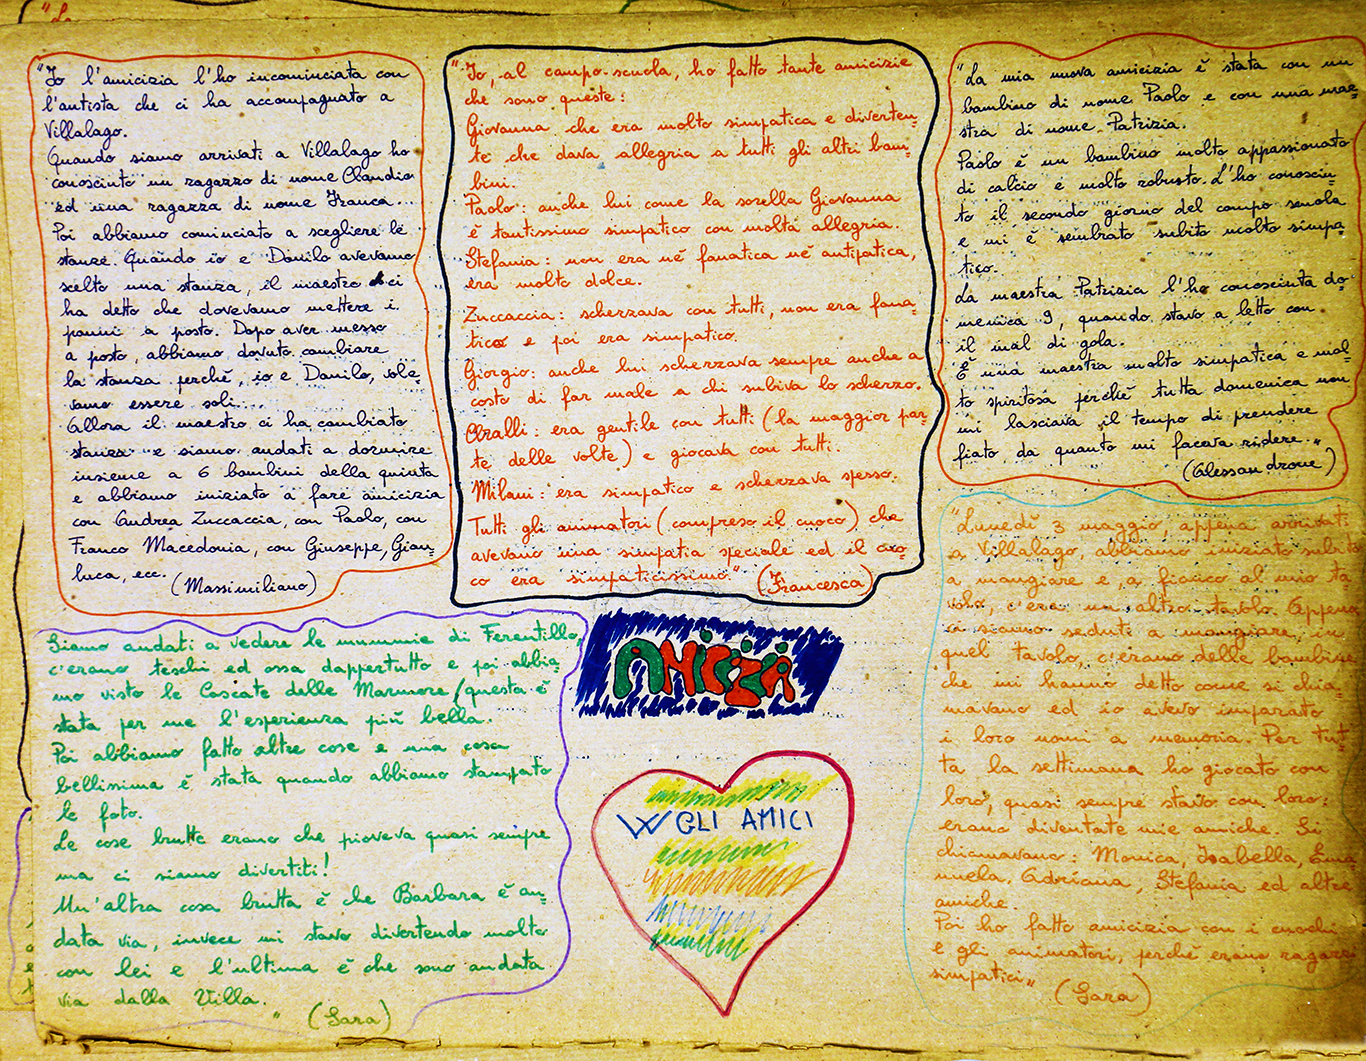 "Io l'amicizia l'ho incominciata con
l'autista che ci ha accompagnato a
Villalago.
Quando siamo arrivati a Villalago ho
conosciuto un ragazzo di nome Claudio
ed una ragazza di nome Franca...
Poi abbiamo cominciato a scegliere le
stanze. Quando io e Danilo avevamo
scelto una stanza, il maestro ci
ha detto che dovevamo mettere i
panni a posto. Dopo aver messo
a posto, abbiamo dovuto cambiare
la stanza perché, io e Danilo, vole-
vamo essere soli...
Allora il maestro ci ha cambiato
stanza e siamo andati a dormire
insieme a 6 bambini della quinta
e abbiamo iniziato a fare amicizia
con Andrea Zuccaccia, con Paolo, con
Franco Macedonia, con Giuseppe, Gian-
luca, ecc. (Massimiliano)
"Io, al campo-scuola, ho fatto tante amicizie
che sono queste:
Giovanna che era molto simpatica e diverten-
te che dava allegria a tutti gli altri bam-
bini.
Paolo: anche lui come la sorella Giovanna
è tantissimo simpatico con molta allegria.
Stefania: non era né fanatica né antipatica,
era molto dolce.
Zuccaccia: scherzava con tutti, non era fana-
tico e poi era simpatico.
Giorgio: anche lui scherzava sempre anche a
costo di far male a chi subiva lo scherzo.
Chralli: era gentile con tutti (la maggior par-
te delle volte) e giocava con tutti.
Milani: era simpatico e scherzava spesso.
Tutti gli animatori (compreso il cuoco) che
avevano una simpatia speciale ed il cuo-
co era simpaticissimo." (Francesca)
"La mia nuova amicizia è stata con un
bambino di nome Paolo e con una mae-
stra di nome Patrizia.
Paolo è un bambino molto appassionato
di calcio e molto robusto. L'ho conosciu-
to il secondo giorno del campo scuola
e mi è sembrato subito molto simpa-
tico.
La maestra Patrizia l'ho conosciuta do-
menica 9, quando stavo a letto con
il mal di gola.
È una maestra molto simpatica e mol-
to spiritosa perché tutta domenica non
mi lasciava il tempo di prendere
fiato da quanto mi faceva ridere."
(Alessandrone)
Siamo andati a vedere le mummie di Ferentillo,
c'erano teschi ed ossa dappertutto e poi abbia-
mo visto le Cascate delle Marmore (questa è
stata per me l'esperienza più bella.
Poi abbiamo fatto altre cose e una cosa
bellissima è stata quando abbiamo stampato
le foto.
Le cose brutte erano che pioveva quasi sempre
ma ci siamo divertiti!
Un'altra cosa brutta è che Barbara è an-
data via, invece mi stavo divertendo molto
con lei e l'ultima è che sono andata
via dalla Villa."
(Sara)
AMICIZIA
W GLI AMICI
"Lunedì 3 maggio, appena arrivati
a Villalago, abbiamo iniziato subito
a mangiare e, a fianco al mio ta
volo, c'era un altro tavolo. Appena
ci siamo seduti a mangiare, in
quel tavolo, c'erano delle bambine
che mi hanno detto come si chia-
mavano ed io avevo imparato
i loro nomi a memoria. Per tut-
ta la settimana ho giocato con
loro, quasi sempre stavo con loro:
erano diventate mie amiche. Si
chiamavano: Monica, Isabella, Ema
nuela, Adriana, Stefania ed altre
amiche.
Poi ho fatto amicizia con i cuochi
e gli animatori, perché erano ragazzi
simpatici" (Sara)